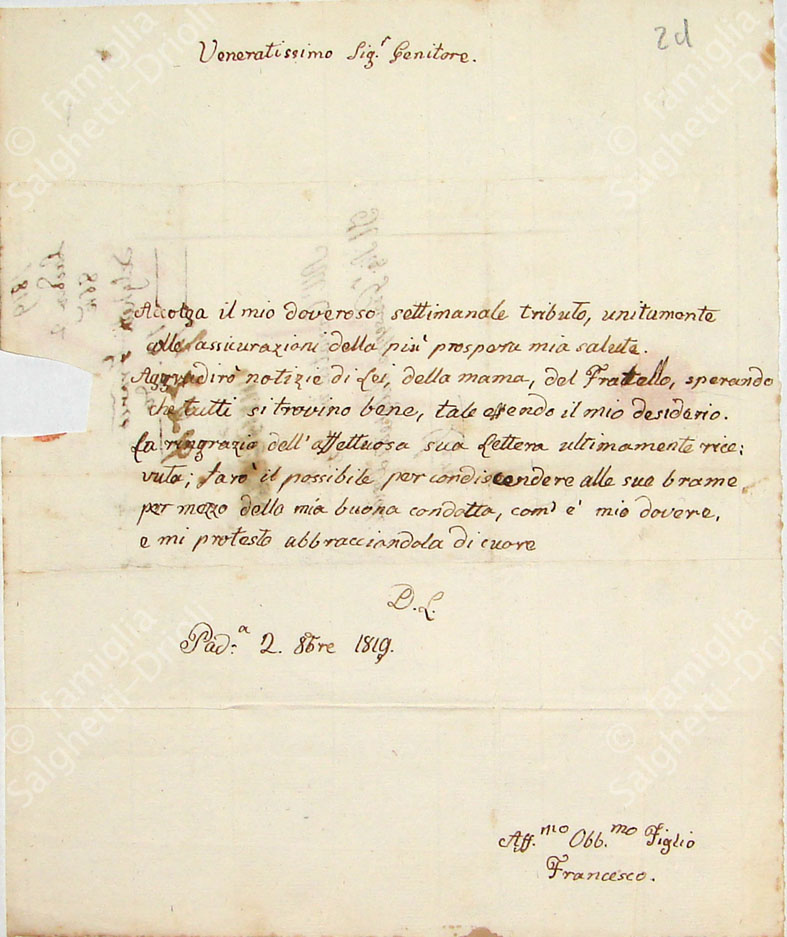 2d
Veneratissimo Sig.r Genitore.
Accolga il mio doveroso settimanale tributo, unitamente
alle assicurazioni della più prospera mia salute.
Aggradirò notizie di Lei, della mama, del Fratello, sperando
che tutti si trovino bene, tale essendo il mio desiderio.
La ringrazio dell'affettuosa sua Lettera ultimamente rice:
vuta; farò il possibile per condiscendere alle sue brame
per mezzo della mia buona condotta, com' è mio dovere,
e mi protesto abbracciandola di cuore
D. L.
Pad.a 2. 8bre 1819.
Aff.mo Obb.mo Figlio
Francesco.
© famiglia Salghetti-Drioli
© famiglia Salghetti-Drioli
© famiglia Salghetti-Drioli
© famiglia Salghetti-Drioli